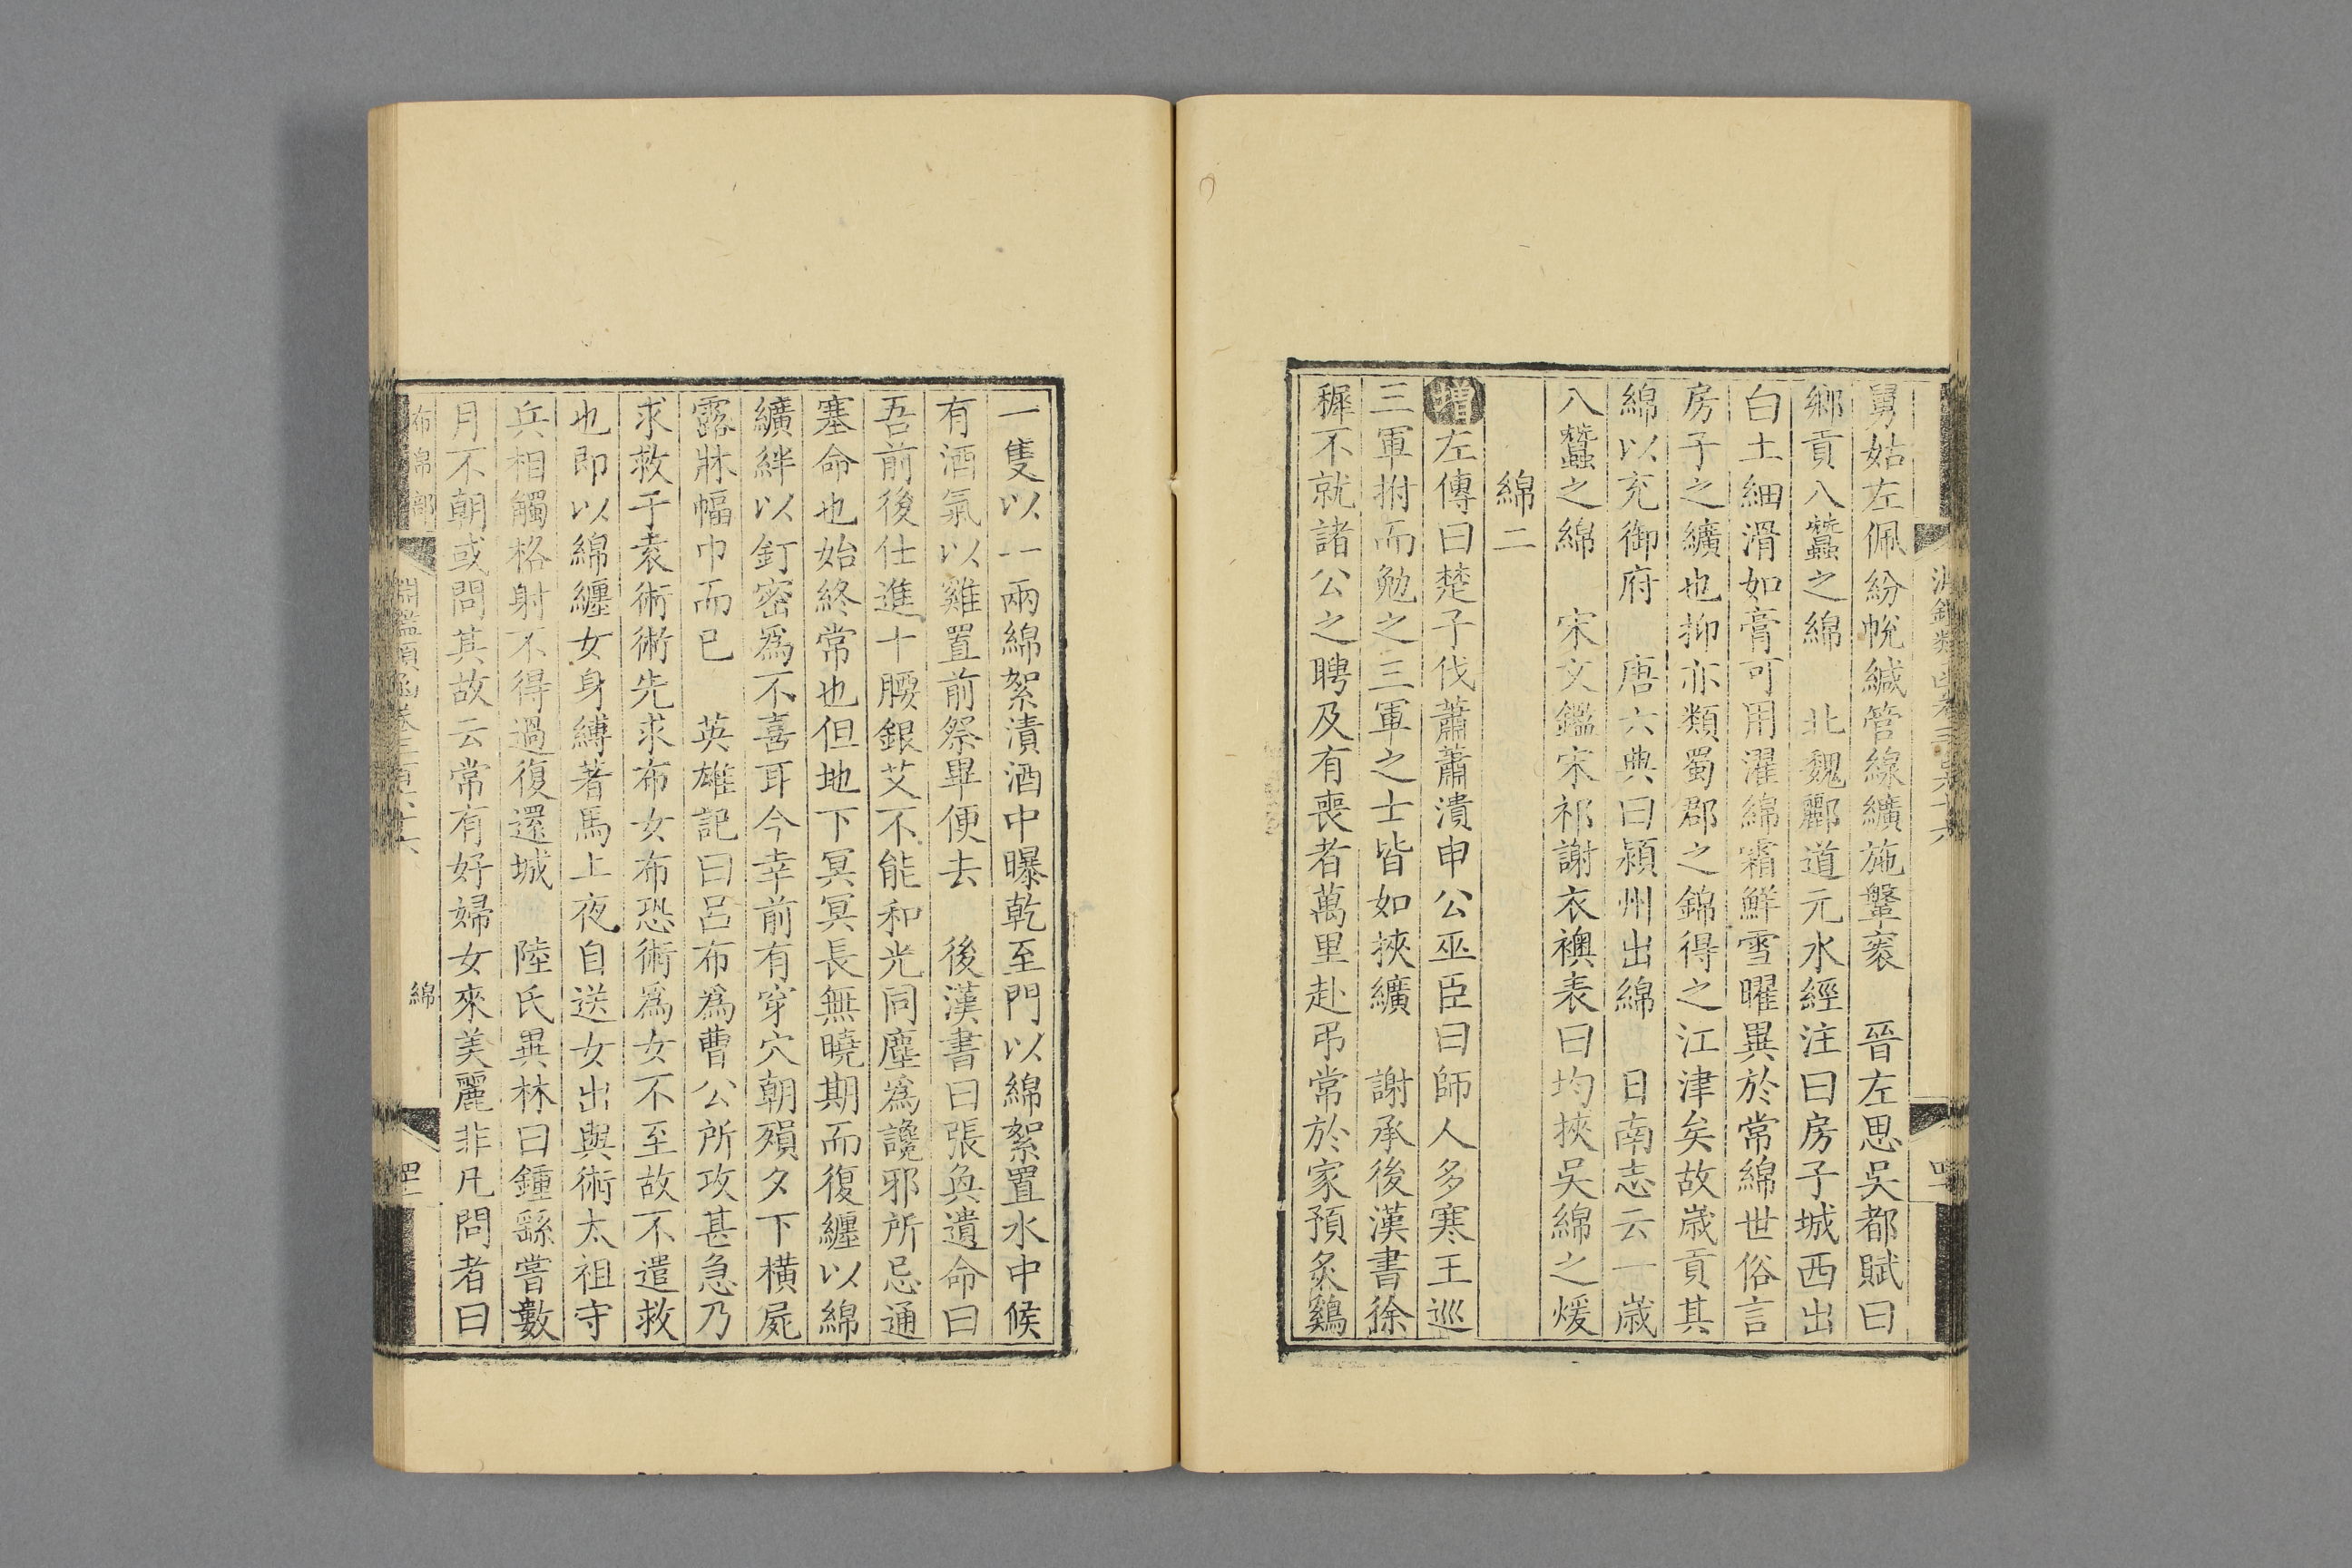 舅姑左佩紛帨緘管線纊施鞶袠　晉左思吳都賦曰
鄉貢八蠶之綿　北魏酈道元水經注曰房子城西出
白土細滑如膏可用濯綿霜鮮雪曜異於常綿世俗言
房子之纊也抑亦類蜀郡之錦得之江津矣故歲貢其
綿以充御府　唐六典曰潁州出綿　日南志云一歲
八蠶之綿　宋文鑑宋祁謝衣襖表曰均挾吳綿之煖
綿二
增左傳曰楚子伐蕭蕭潰申公巫臣曰師人多寒王巡
三軍拊而勉之三軍之士皆如挾纊　謝承後漢書徐
穉不就諸公之聘及有喪者萬里赴弔常於家預炙鷄
一隻以一兩綿絮漬酒中曝乾至門以綿絮置水中候
有酒氣以雞置前祭畢便去　後漢書曰張奐遺命曰
吾前後仕進十腰銀艾不能和光同塵爲讒邪所忌通
塞命也始終常也但地下冥冥長無曉期而復纏以綿
纊絆以釘密爲不喜耳今幸前有穿穴朝殞夕下橫屍
露牀幅巾而已　英雄記曰呂布爲曹公所攻甚急乃
求救于袁術術先求布女布恐術爲女不至故不遣救
也即以綿纏女身縛著馬上夜自送女出與術太祖守
兵相觸格射不得過復還城　陸氏異林曰鍾繇嘗數
月不朝或問其故云常有好婦女來美麗非凡問者曰
布帛部　淵鑑類函卷三百六十六　綿